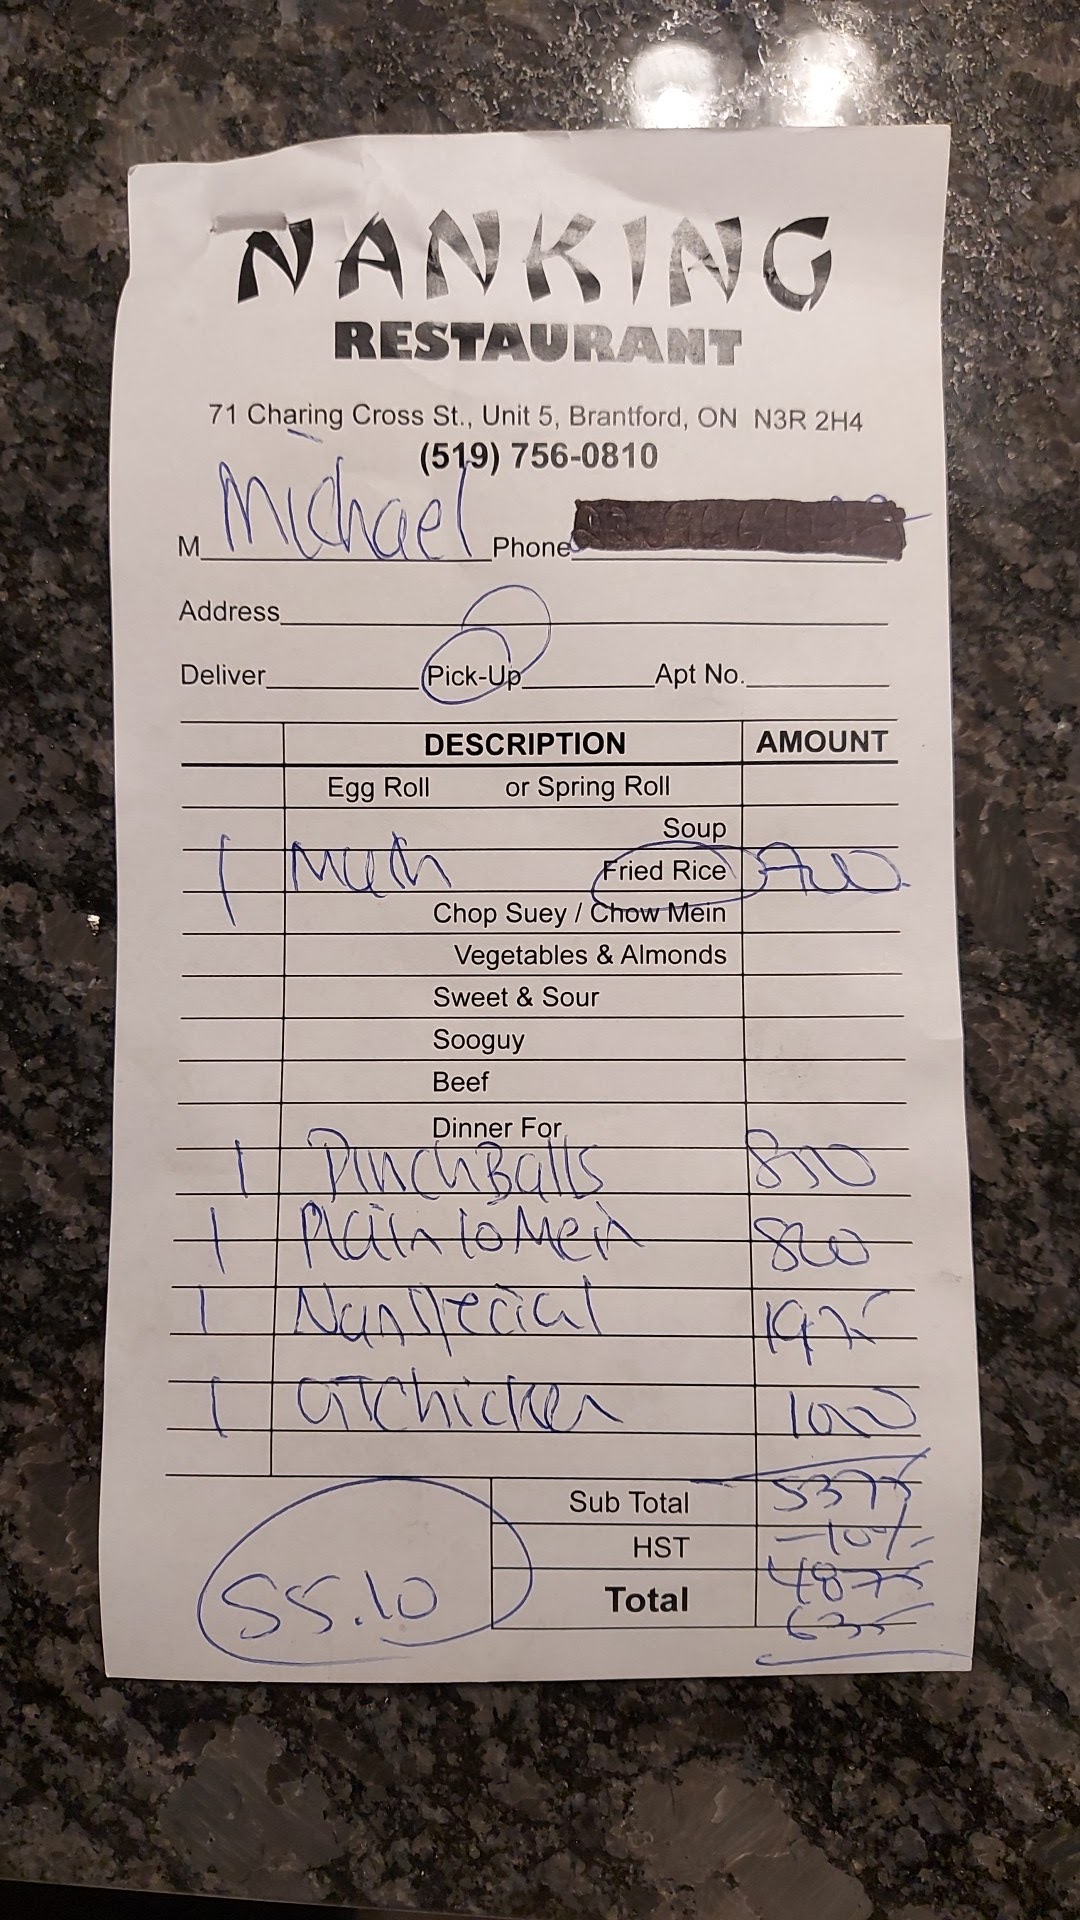 NANKING
RESTAURANT
71 Charing Cross St., Unit 5, Brantford, ON N3R 2H4
(519) 756-0810
M Michael Phone
Address
Deliver Pick-Up Apt No.
DESCRIPTION AMOUNT
Egg Roll or Spring Roll
Soup
1 Fried Rice
Chop Suey / Chow Mein
Vegetables & Almonds
Sweet & Sour
Sooguy
Beef
Dinner For
1 Balls
1 Plain lo Mein 820
1 Nan special 1975
1 GT Chicken 1000
Sub Total 5375
HST -10%
Total 4875
635
55.10